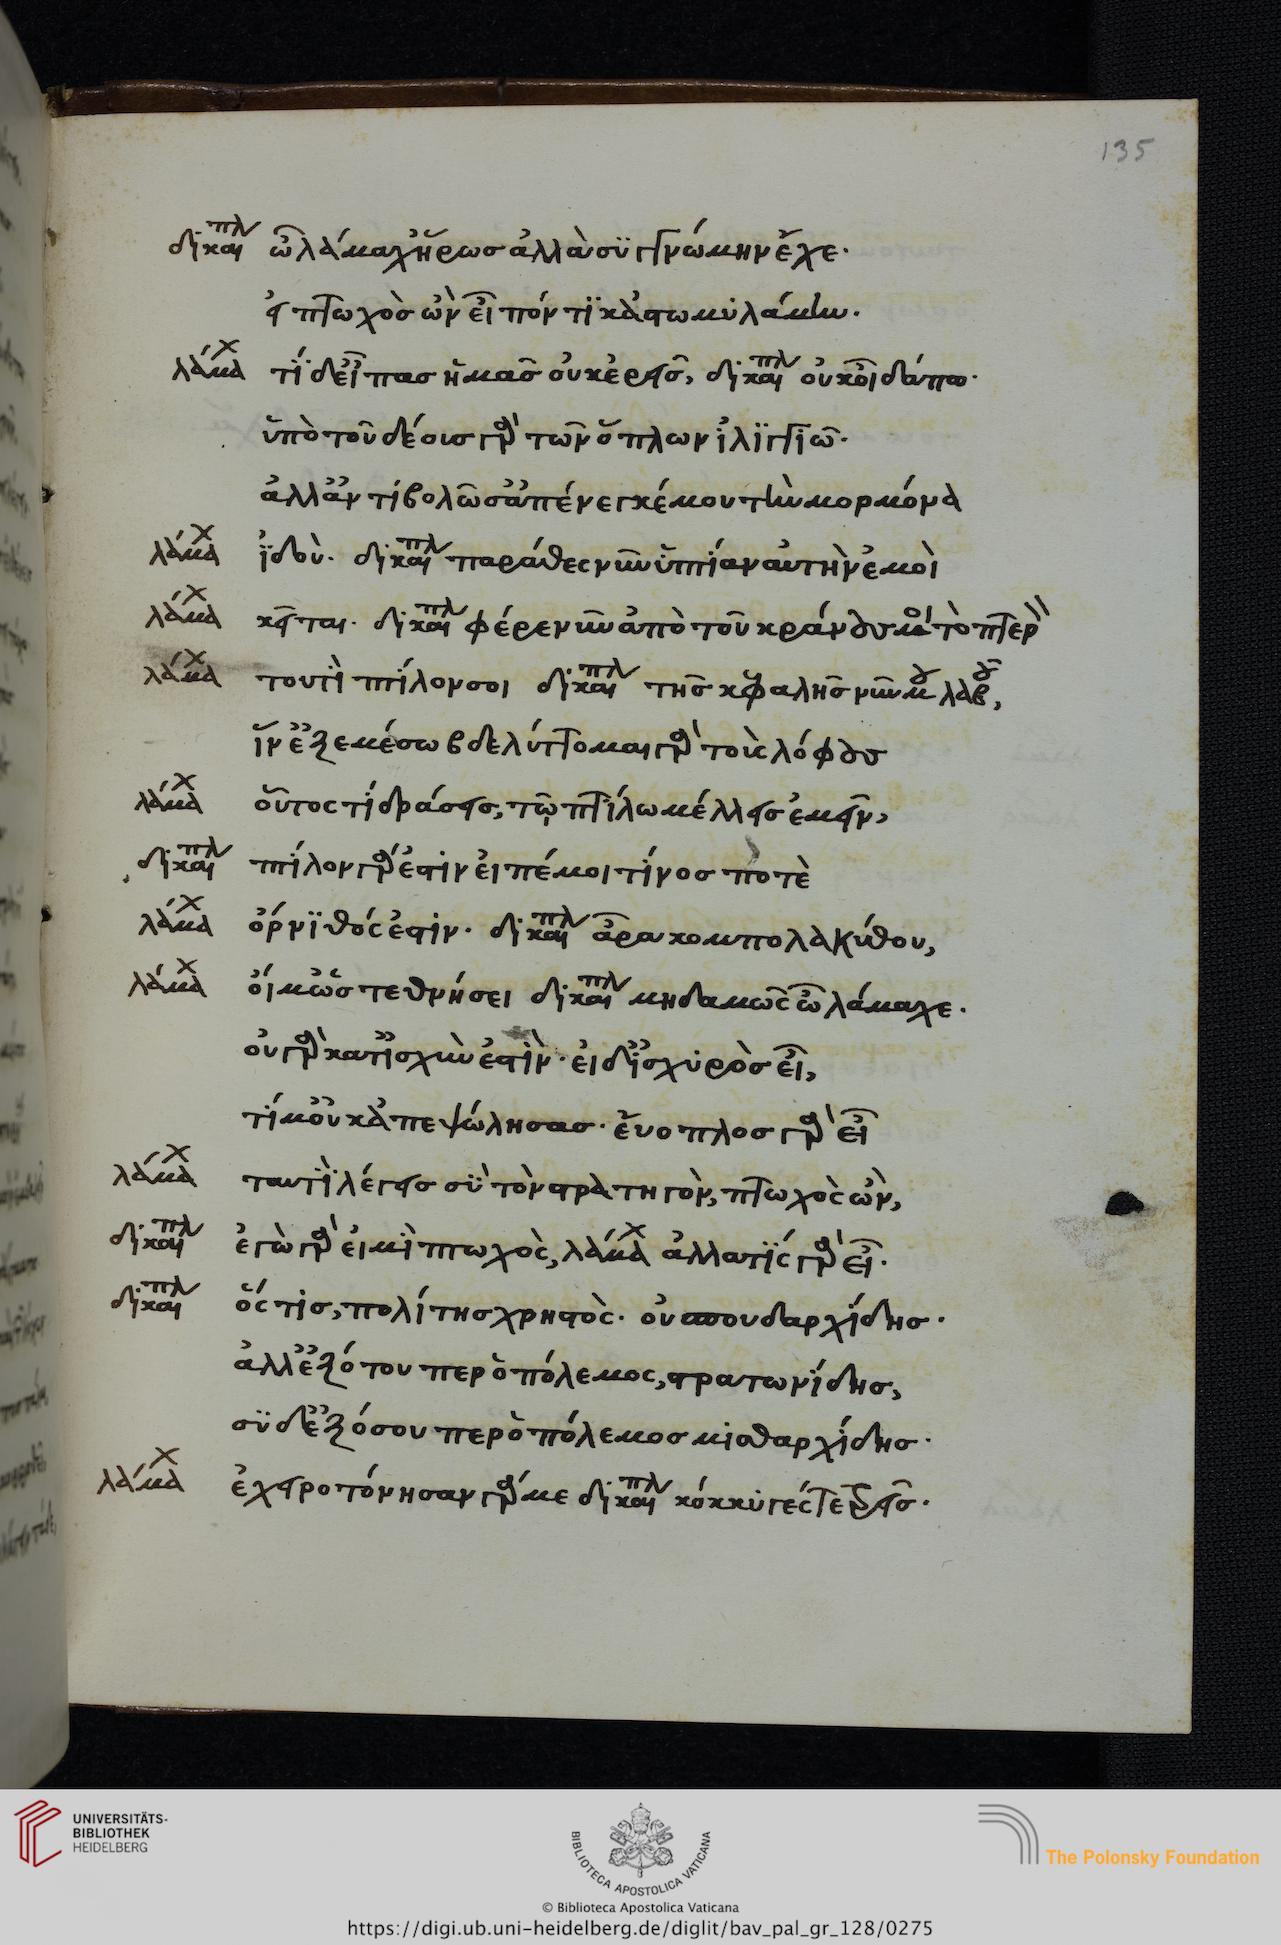 135
δικαι^πλ ὦ λάμαχ' ἥρως ἀλλὰ συγγνώμην ἔχε·
εἰ πτωχὸς ὢν εἶπόν τι κἀστωμυλάμην·
λάμα^χ τί δ' εἶπας ἡμᾶς οὐκ ἐρεῖς, δικαι^πλ οὐκ οἶδάπω·
ὑπὸ τοῦ δέους γὰρ τῶν ὅπλων ἰλιγγιῶ·
ἀλλ' ἀντιβολῶ σ' ἀπένεγκέ μου τὴν μορμόνα
λάμα^χ ἰδού· δικαι^πλ παράθες νῦν ὑπτίαν αὐτὴν ἐμοὶ
λάμα^χ κεῖται· δικαι^πλ φέρε νῦν ἀπὸ τοῦ κράνους μοι τὸ πτερ
λάμα^χ τουτὶ πτίλον σοι δικαι^πλ τῆς κεφαλῆς νῦν μου λαβοῦ,
ἵν' ἐξεμέσω βδελύττομαι γὰρ τοὺς λόφους
λάμα^χ οὗτος τί δράσεις, τῷ πτίλω μέλλεις ἐμεῖν,
δικαι^πλ πτίλον γάρ ἐστιν εἰπέ μοι τίνος ποτὲ
λάμα^χ ὄρνιθός ἐστιν· δικαι^πλ ἆρα κομπολακύθου,
λάμα^χ οἴμ' ὡς τεθνήσει δικαι^πλ μηδαμῶς ὦ λάμαχε·
οὐ γὰρ κατ' ἰσχύν ἐστὶν· εἰ δ' ἰσχυρὸς εἶ,
τί μ' οὐκ ἀπεψώλησας· εὔοπλος γὰρ εἶ
λάμα^χ ταυτὶ λέγεις σὺ τὸν στρατηγὸν, πτωχὸς ὢν,
δικαι^πλ ἐγὼ γὰρ εἰμὶ πτωχὸς, λάμα^χ ἀλλὰ τίς γὰρ εἶ·
δικαι^πλ ὅς τις, πολίτης χρηστὸς· οὐ σπουδαρχίδης·
ἀλλ' ἐξ ὅτου περ ὁ πόλεμος, στρατωνίδης,
σὺ δ' ἐξ ὅσου περ ὁ πόλεμος μισθαρχίδης·
λάμα^χ ἐχειροτόνησαν γάρ με δικαι^πλ κόκκυγές
UNIVERSITÄTS-
BIBLIOTHEK
HEIDELBERG
BIBLIOTECA APOSTOLICA VATICANA
The Polonsky Foundation
© Biblioteca Apostolica Vaticana
https://digi.ub.uni-heidelberg.de/diglit/bav_pal_gr_128/0275